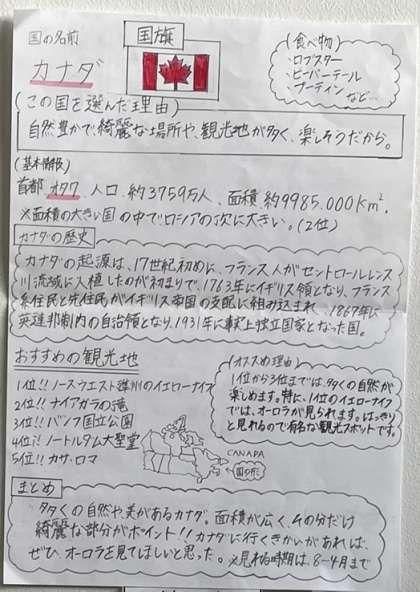 国の名前
国旗
カナダ
(食べ物)
・ロブスター
・ビーバーテール
・プーティン
など…
(この国を選んだ理由)
自然豊かで、綺麗な場所や、観光地が多く、楽しそうだから。
(基本情報)
首都 オタワ、人口、約3759万人、面積、約9985.000Km²,
※面積の大きい国の中でロシアの次に大きい。(2位)
カナダの歴史
カナダの起源は、17世紀初めに、フランス人がセントローレンス
川流域に入植したのが初まりで、1763年にイギリス領となり、フランス
系住民と先住民がイギリス帝国の支配に組み込まれ、1867年に
英連邦制内の自治領となり、1931年に事実上独立国家となった国。
おすすめの観光地
1位!! ノースウエスト準州のイエローナイフ
2位!! ナイアガラの滝
3位!! バンフ国立公園
4位!! ノートルダム大聖堂
5位!! カサ・ロマ
(オススメ理由)
1位から3位までは、多くの自然が
楽しめます。特に、1位のイエローナイフ
では、オーロラが見られます。はっきり
と見れるので有名な観光スポットです。
CANADA
国の形
まとめ
多くの自然や、美があるカナダ。面積が広く、その分だけ
綺麗な部分がポイント!! カナダに行くきかいがあれば、
ぜひ、オーロラを見てほしいと思った。※見れる時期は、8-4月まで